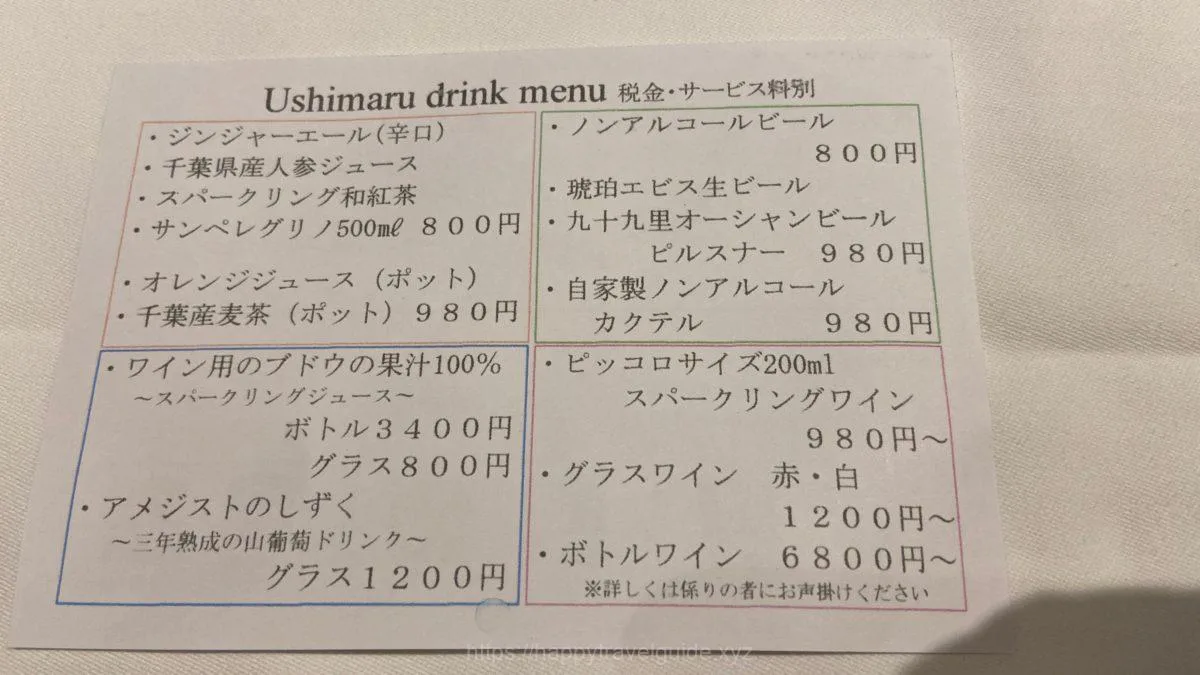 Ushimaru drink menu 税金・サービス料別
・ジンジャーエール(辛口)
・千葉県産人参ジュース
・スパークリング和紅茶
・サンペレグリノ500㎖ ８００円
・オレンジジュース（ポット）
・千葉産麦茶（ポット）９８０円
・ノンアルコールビール
８００円
・琥珀エビス生ビール
・九十九里オーシャンビール
ピルスナー ９８０円
・自家製ノンアルコール
カクテル ９８０円
・ワイン用のブドウの果汁100%
～スパークリングジュース～
ボトル３４００円
グラス８００円
・アメジストのしずく
～三年熟成の山葡萄ドリンク～
グラス１２００円
・ピッコロサイズ200ml
スパークリングワイン
９８０円～
・グラスワイン 赤・白
１２００円～
・ボトルワイン ６８００円～
※詳しくは係りの者にお声掛けください
https://happytravelguide.xyz